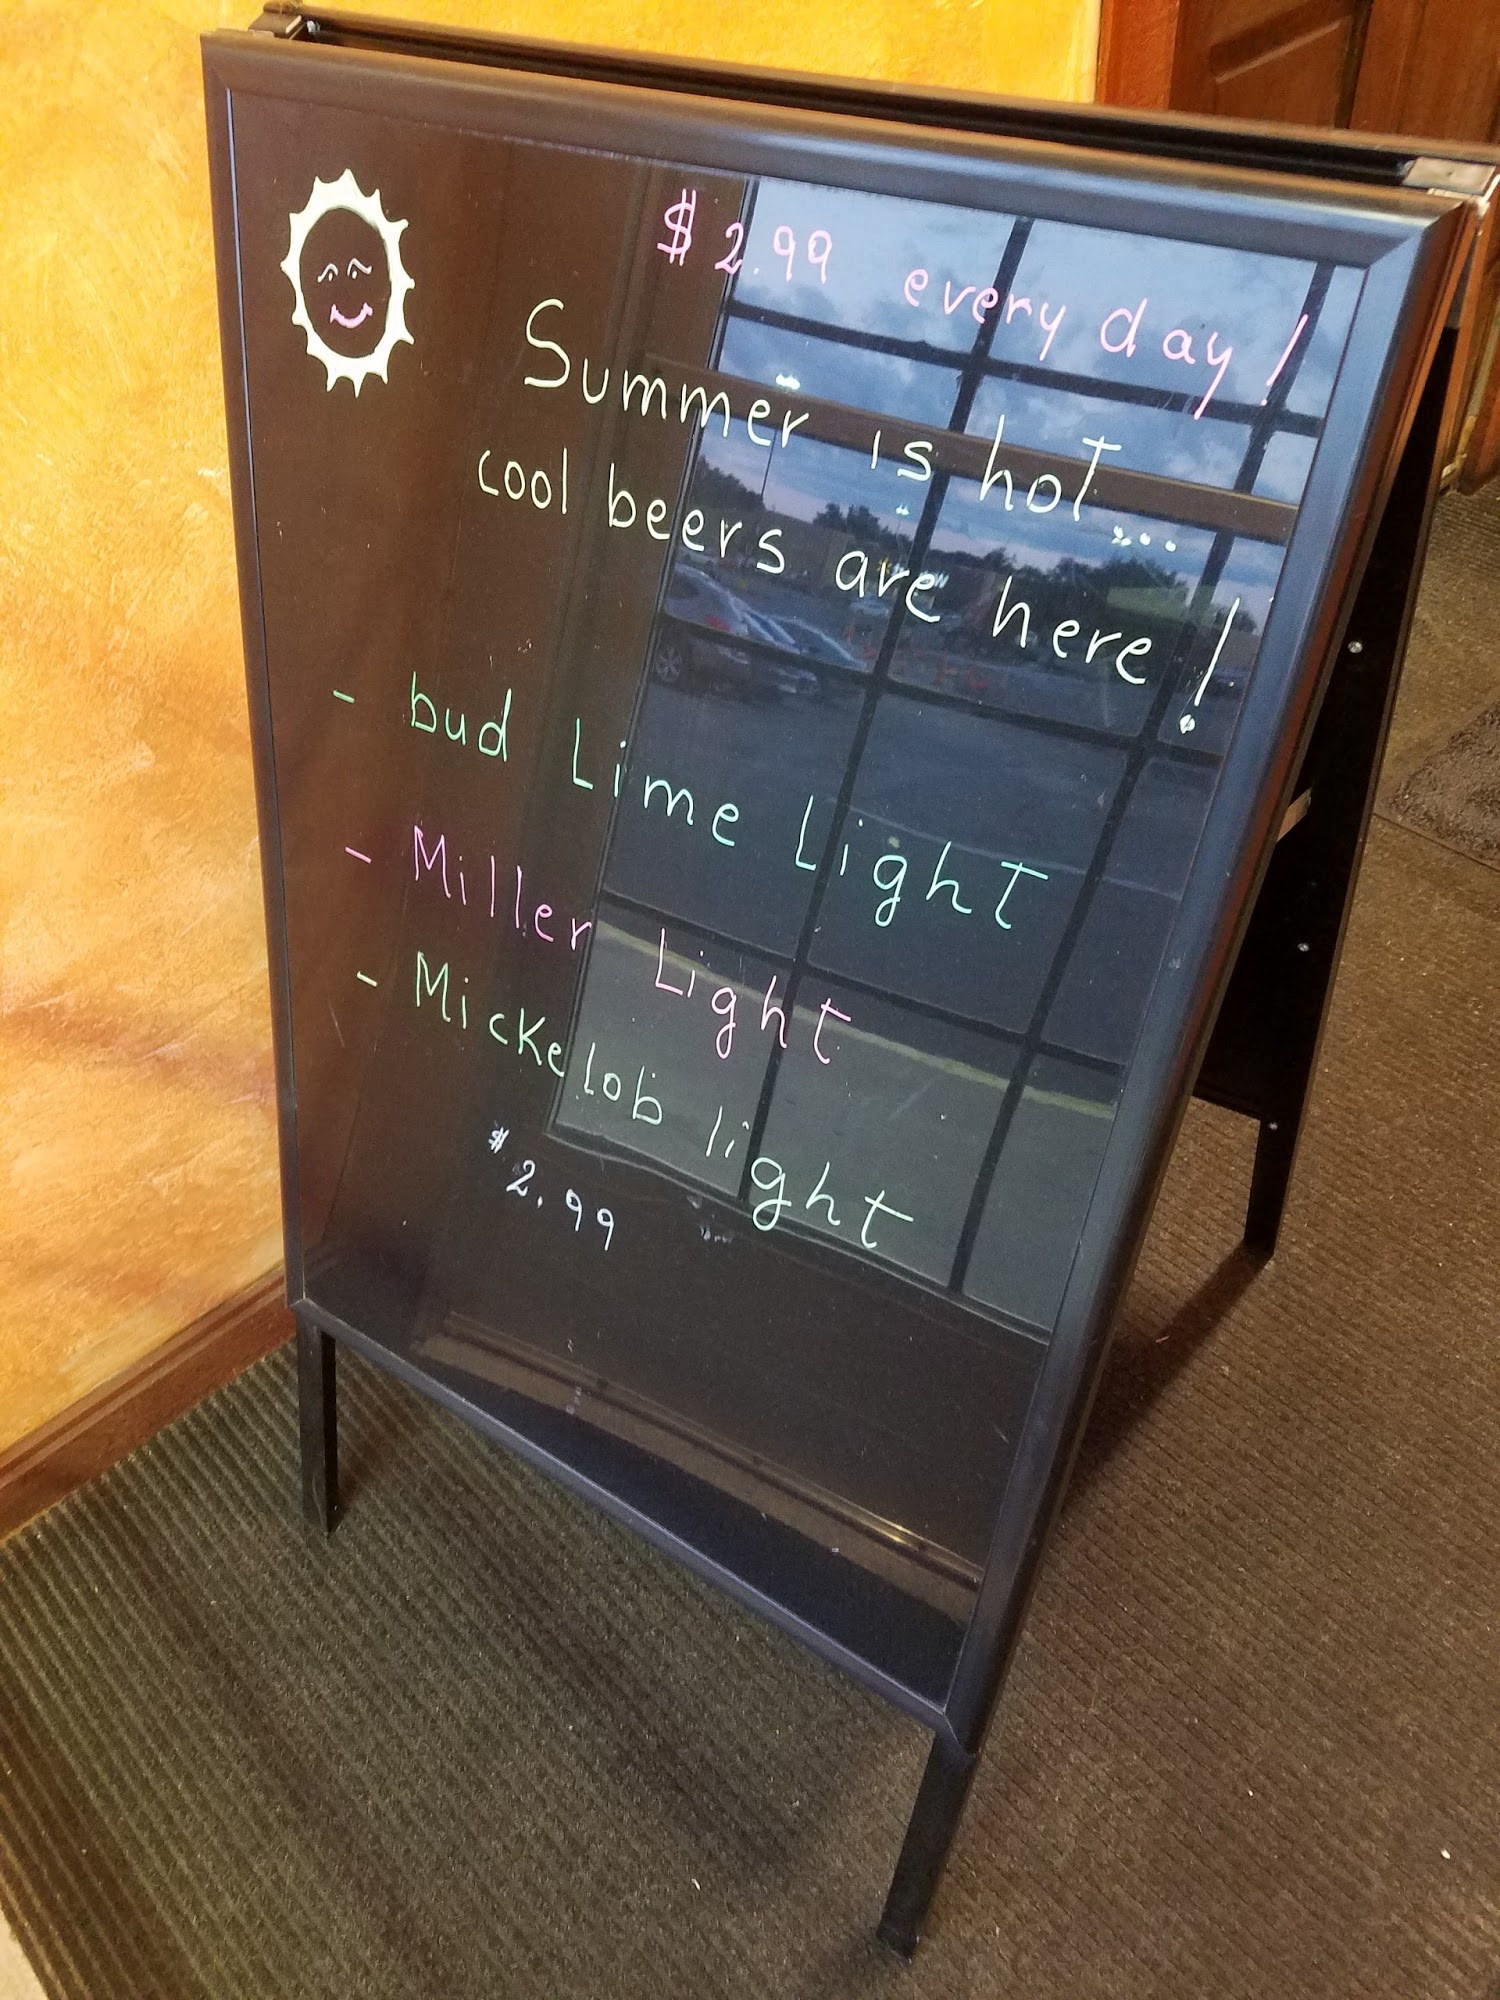 $2.99 every day!
Summer is hot...
cool beers are here!
- bud Lime Light
- Miller Light
- Mickelob light
$2.99